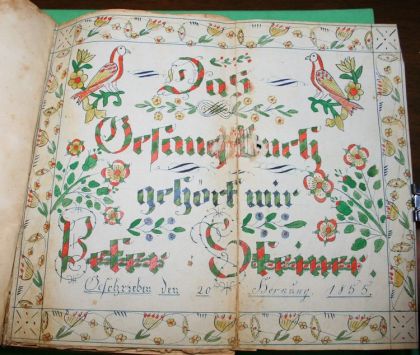 Das
Gesang Buch
gehört mir
Peter Steiner.
Geschrieben den 20 Hornung 1855